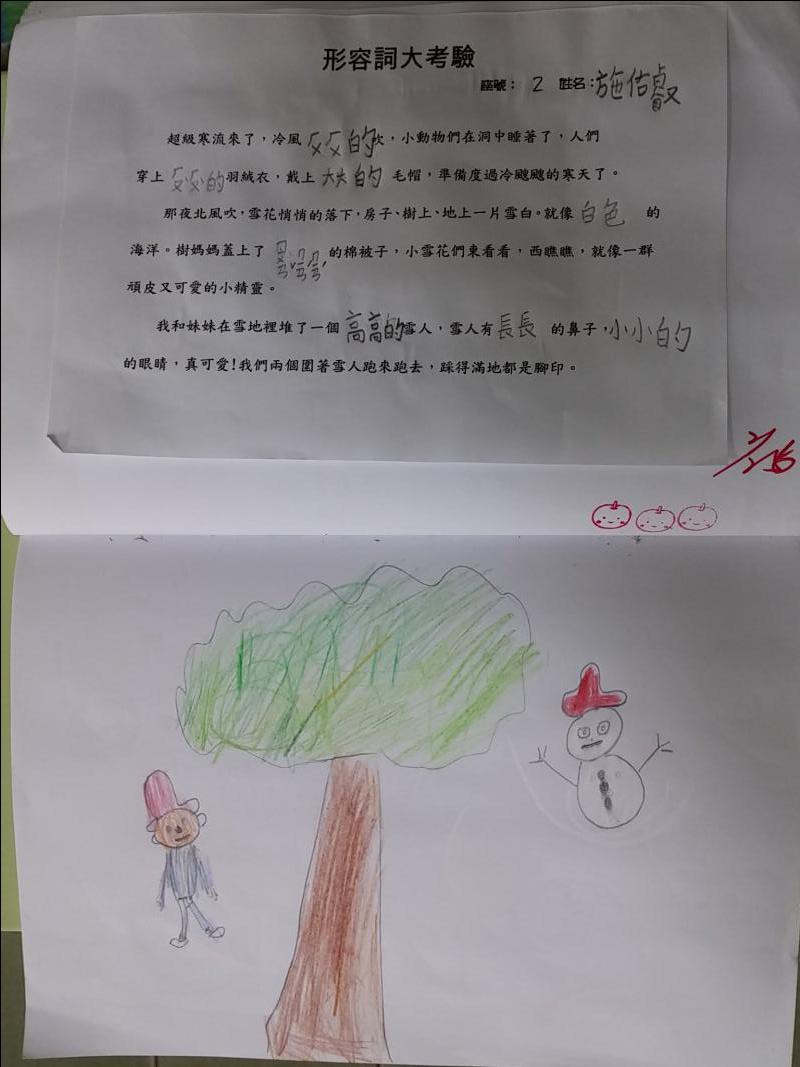 形容詞大考驗
座號：2 姓名：施佑叡
超級寒流來了，冷風 ㄆㄆ的 吹，小動物們在洞中睡著了，人們
穿上 的羽絨衣，戴上 大大的 毛帽，準備度過冷颼颼的寒天了。
那夜北風吹，雪花悄悄的落下，房子、樹上、地上一片雪白。就像 白色 的
海洋。樹媽媽蓋上了 的棉被子，小雪花們東看看，西瞧瞧，就像一群
頑皮又可愛的小精靈。
我和妹妹在雪地裡堆了一個 高高的 雪人，雪人有 長長 的鼻子，小小的
的眼睛，真可愛！我們兩個圍著雪人跑來跑去，踩得滿地都是腳印。